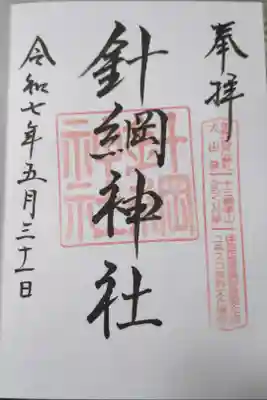 奉拝
針綱神社
令和七年五月三十一日
針綱神社